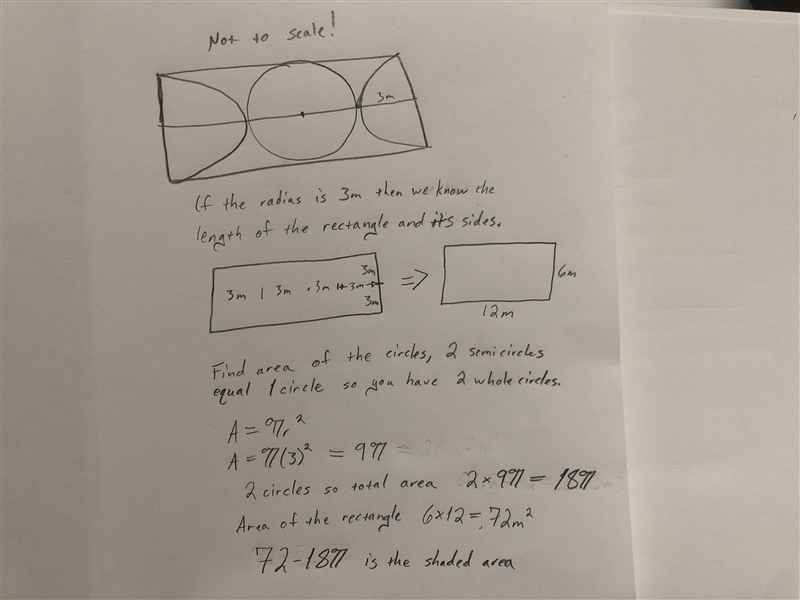 Not to scale!
3m
If the radias is 3m then we know the
length of the rectangle and its sides.
3m
3m | 3m . 3m 3m
3m
=> 6m
12m
Find area of the circles, 2 semicircles
equal 1 circle so you have 2 whole circles.
A = πr²
A = π(3)² = 9π
2 circles so total area 2 × 9π = 18π
Area of the rectangle 6×12 = 72m²
72-18π is the shaded area